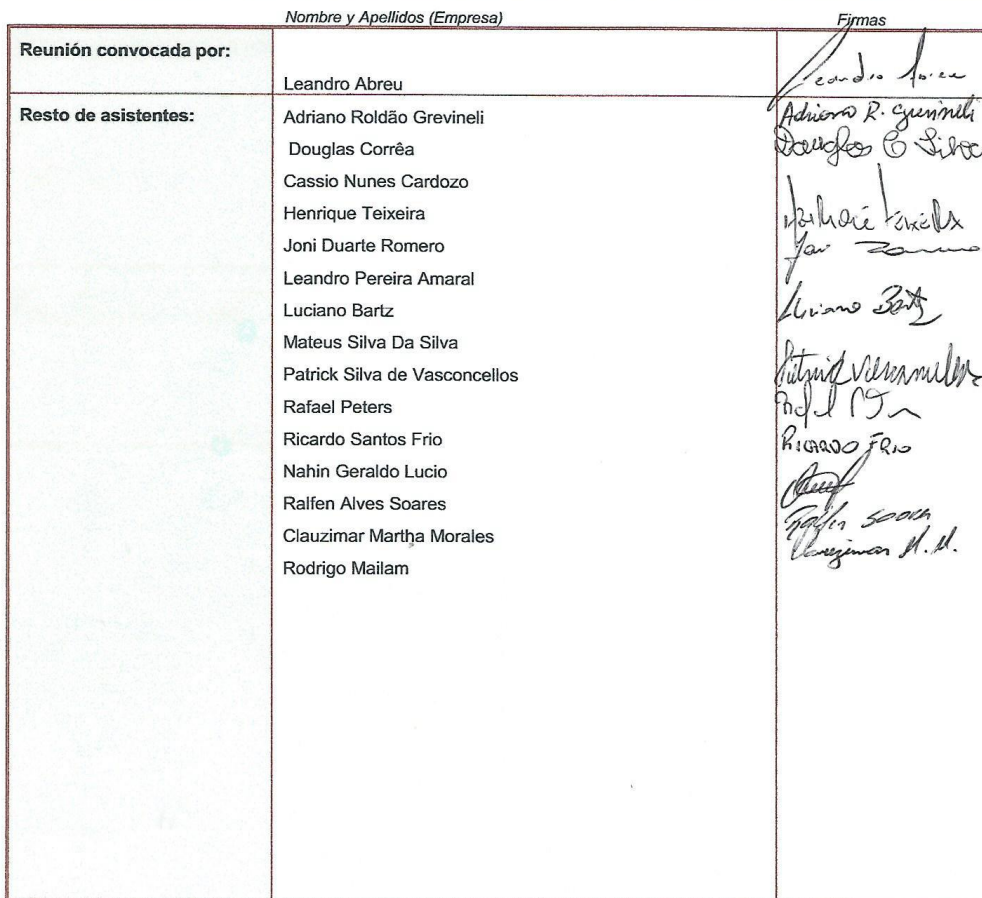 Nombre y Apellidos (Empresa) Firmas
Reunión convocada por:
Leandro Abreu
Resto de asistentes: Adriano Roldão Grevineli Adriano R. Grevineli
Douglas Corrêa Douglas C Silva
Cassio Nunes Cardozo
Henrique Teixeira Teixeira
Joni Duarte Romero
Leandro Pereira Amaral
Luciano Bartz Luciano Bartz
Mateus Silva Da Silva
Patrick Silva de Vasconcellos Patrick Vasconcellos
Rafael Peters
Ricardo Santos Frio RICARDO FRIO
Nahin Geraldo Lucio
Ralfen Alves Soares Ralfen Soares
Clauzimar Martha Morales Clauzimar M.M.
Rodrigo Mailam